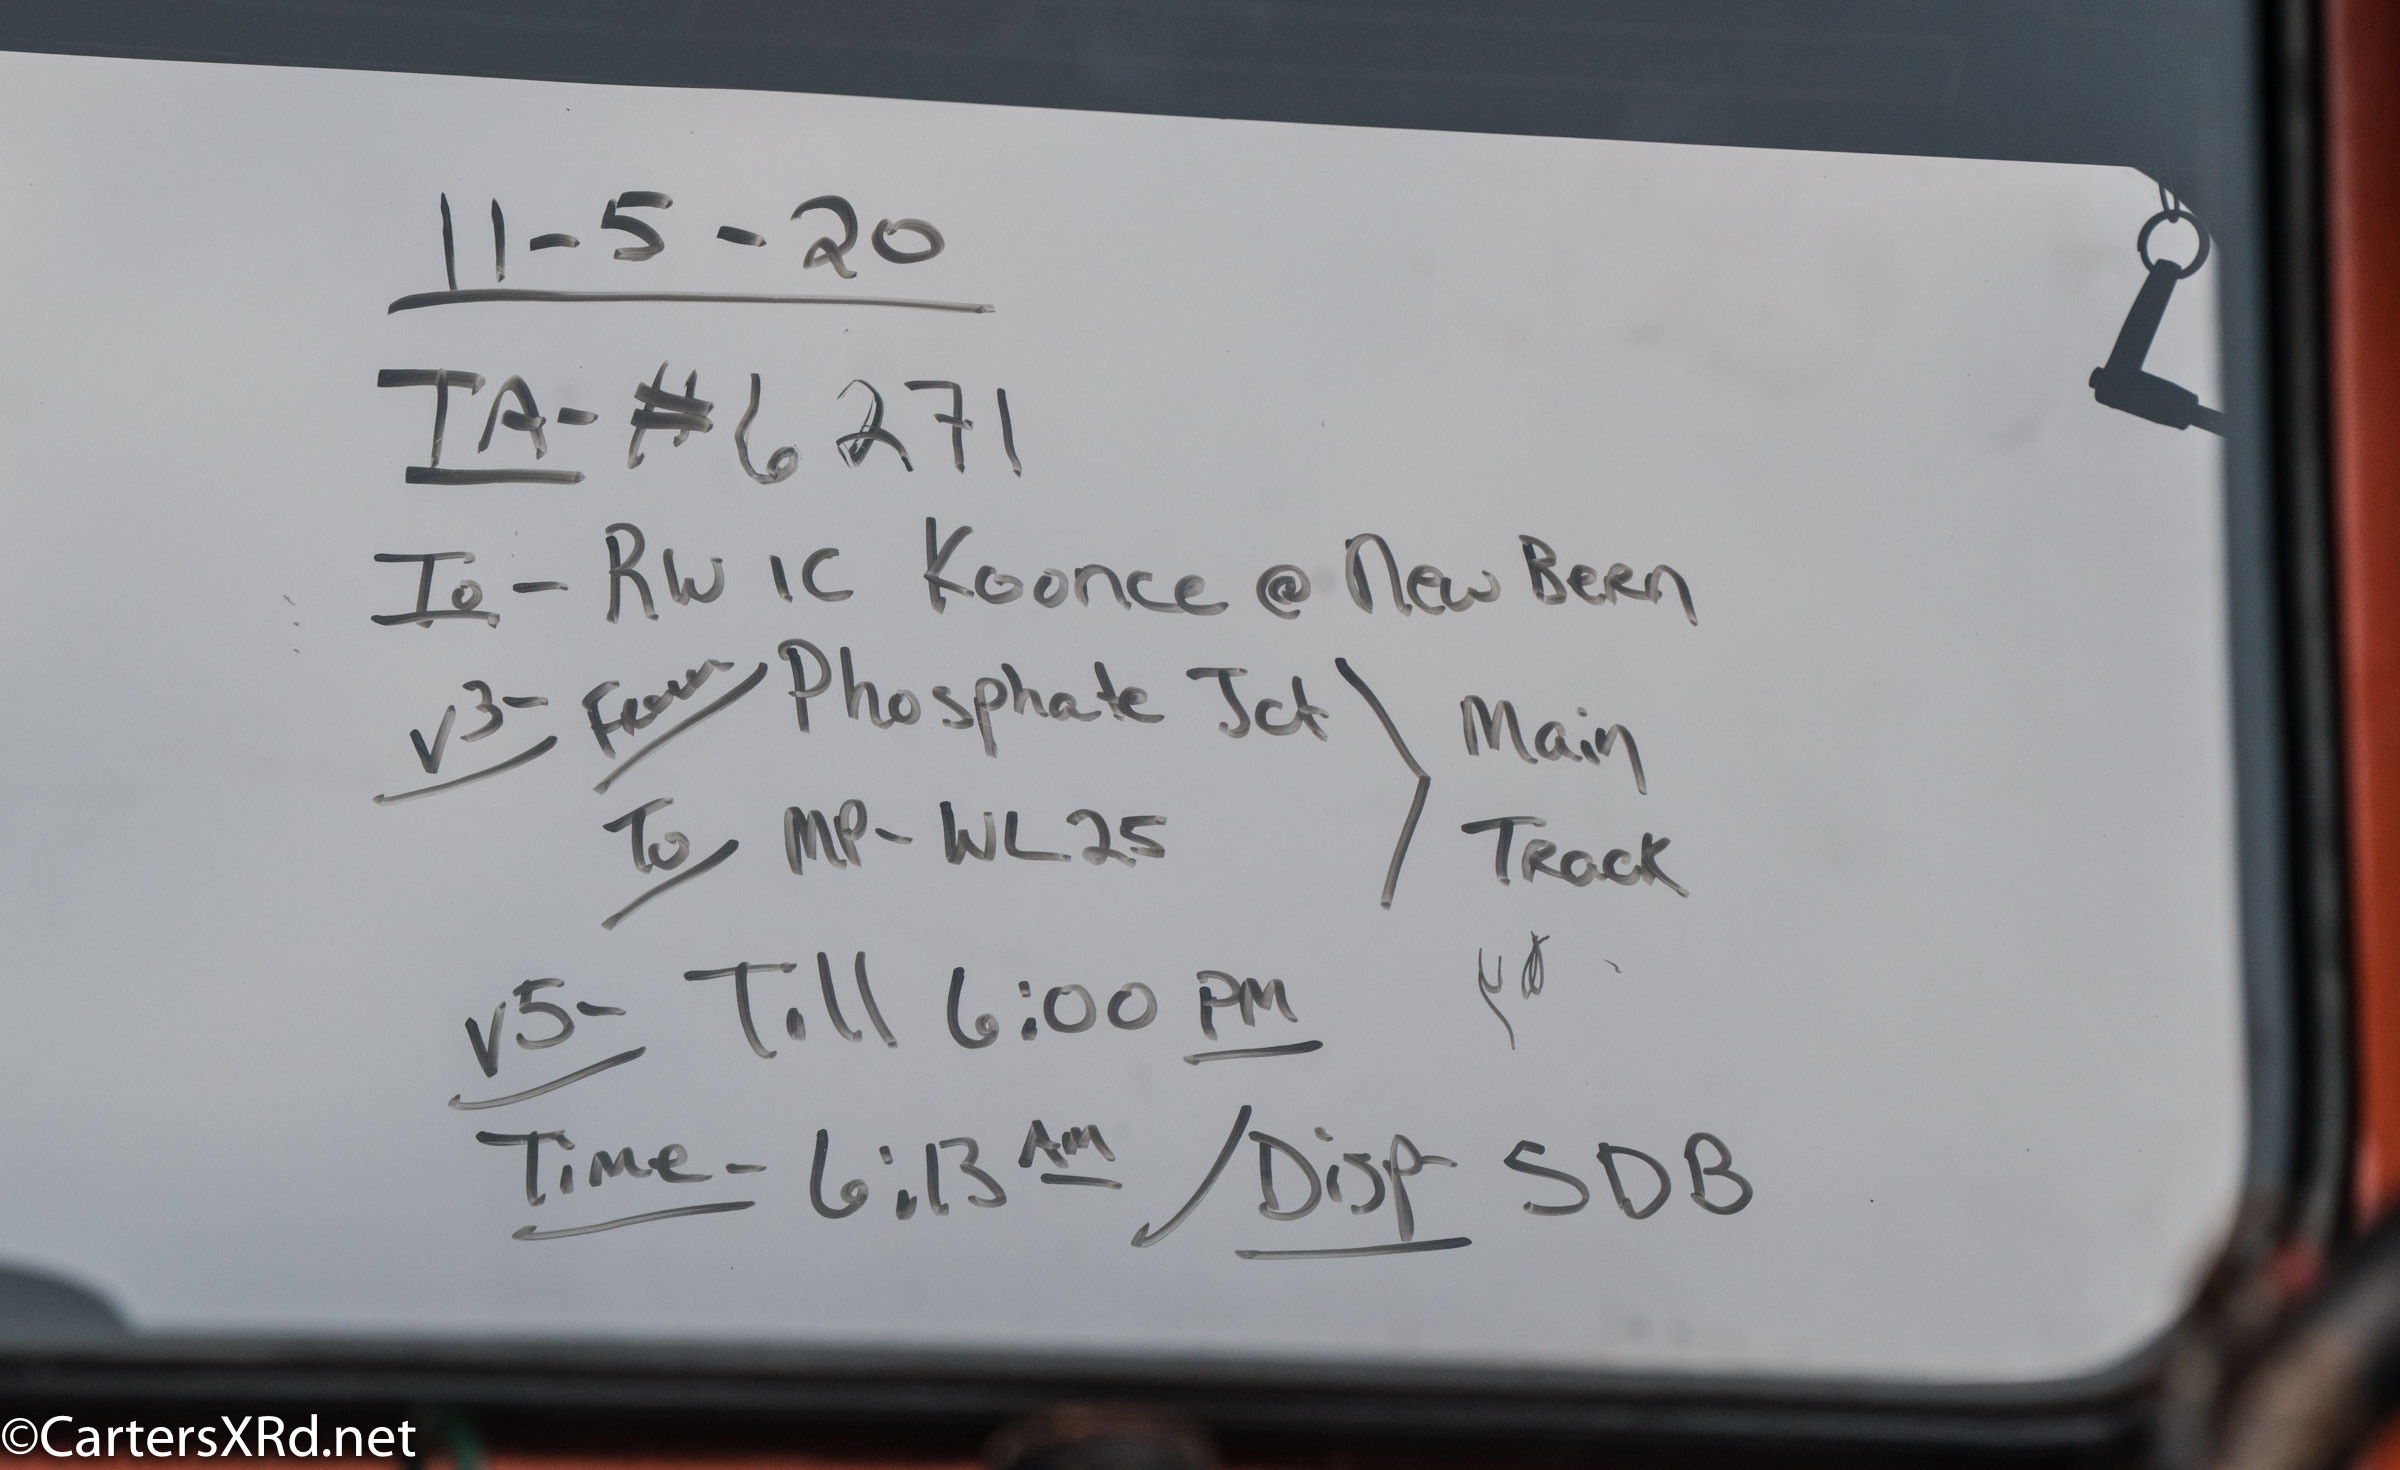 11-5-20
TA-#6271
To - RWIC Koonce @ New Bern
v3- From Phosphate Jct
Main
To MP- WL25
Track
v5- Till 6:00 PM
Time- 6:13 AM / Disp- SDB
©CartersXRd.net